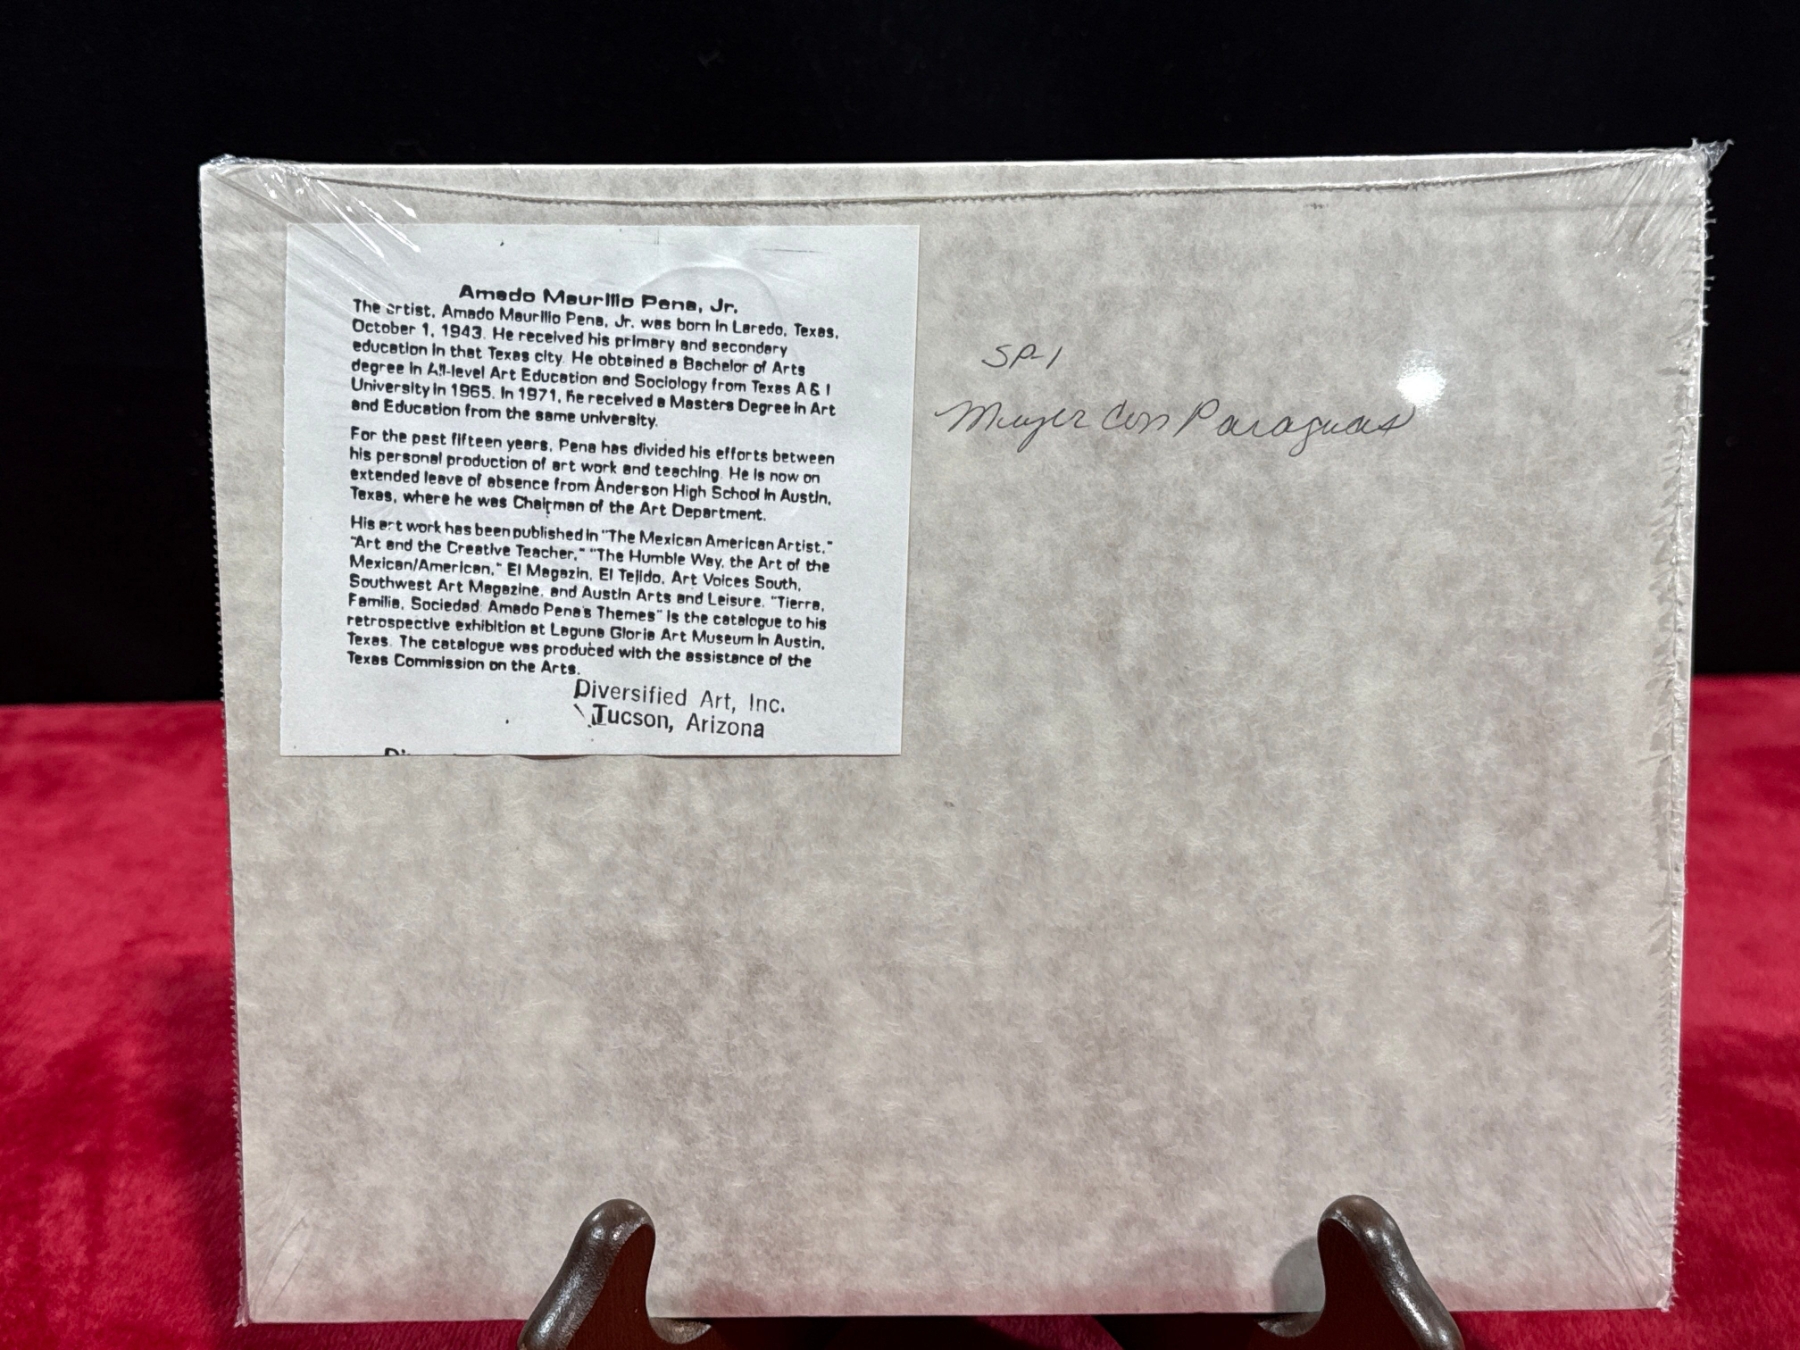 Amado Maurilio Pena, Jr.
The artist, Amado Maurilio Pena, Jr. was born in Laredo, Texas,
October 1, 1943. He received his primary and secondary
education in that Texas city. He obtained a Bachelor of Arts
degree in All-level Art Education and Sociology from Texas A & I
University in 1965. In 1971, he received a Masters Degree in Art
and Education from the same university.
For the past fifteen years, Pena has divided his efforts between
his personal production of art work and teaching. He is now on
extended leave of absence from Anderson High School in Austin,
Texas, where he was Chairman of the Art Department.
His art work has been published in "The Mexican American Artist,"
"Art and the Creative Teacher," "The Humble Way, the Art of the
Mexican/American," El Magazin, El Tejido, Art Voices South,
Southwest Art Magazine, and Austin Arts and Leisure. "Tierra,
Familia, Sociedad: Amado Pena's Themes" is the catalogue to his
retrospective exhibition at Laguna Gloria Art Museum in Austin,
Texas. The catalogue was produced with the assistance of the
Texas Commission on the Arts.
Diversified Art, Inc.
Tucson, Arizona
SP-1
Mujer Con Paraguas